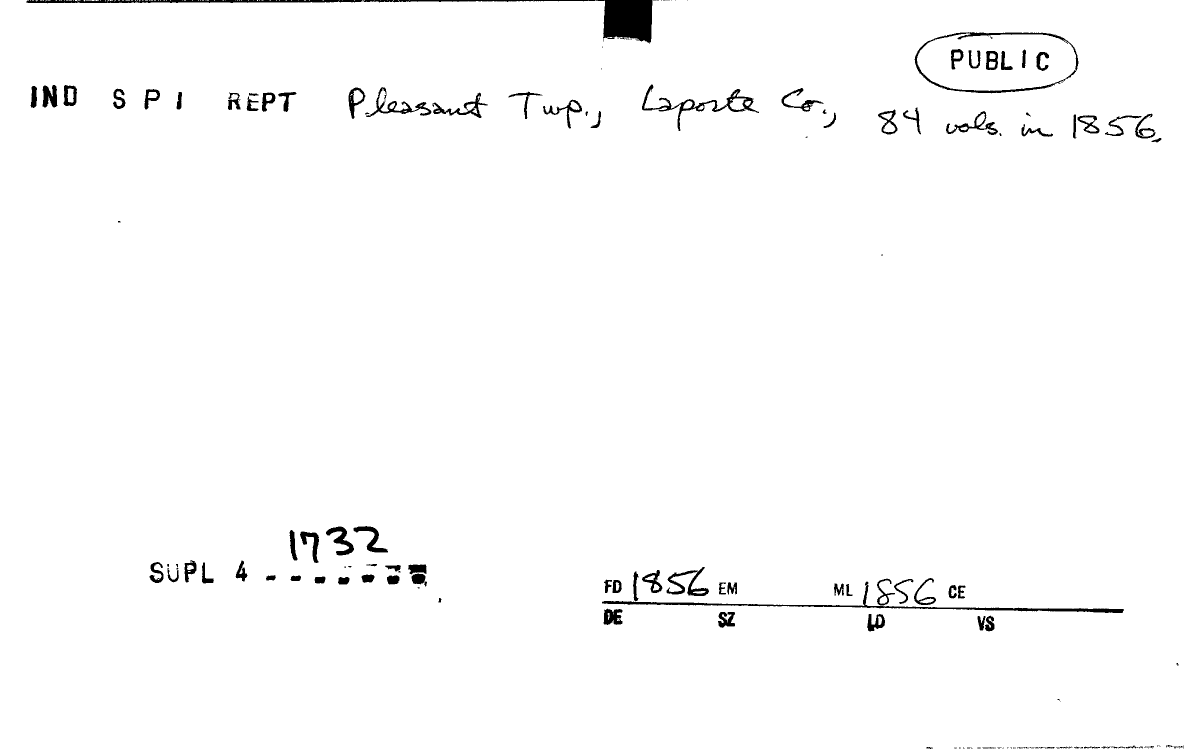 PUBLIC
IND S P I REPT Pleasant Twp., Laporte Co., 84 vols. in 1856.
1732
SUPL 4
FD 1856 EM ML 1856 CE
DE SZ LD VS